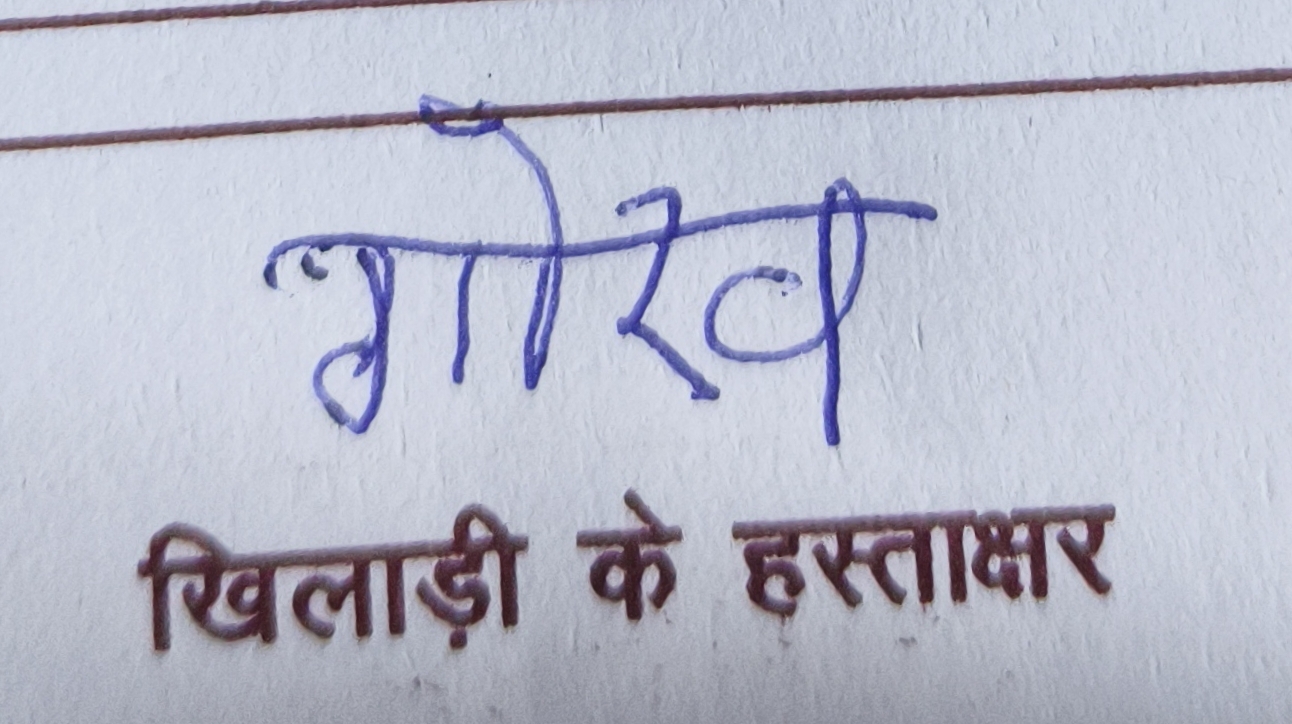 गोरव
खिलाड़ी के हस्ताक्षर